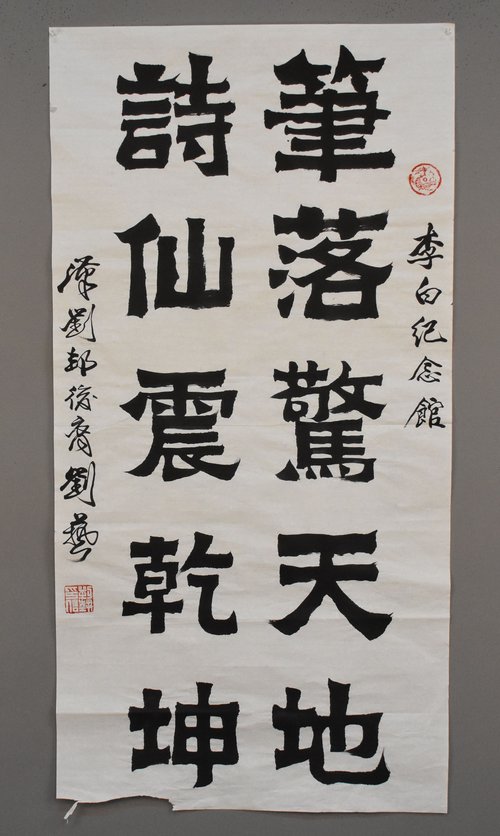 李白纪念館
筆落驚天地
詩仙震乾坤
漢劉邦後裔劉藝